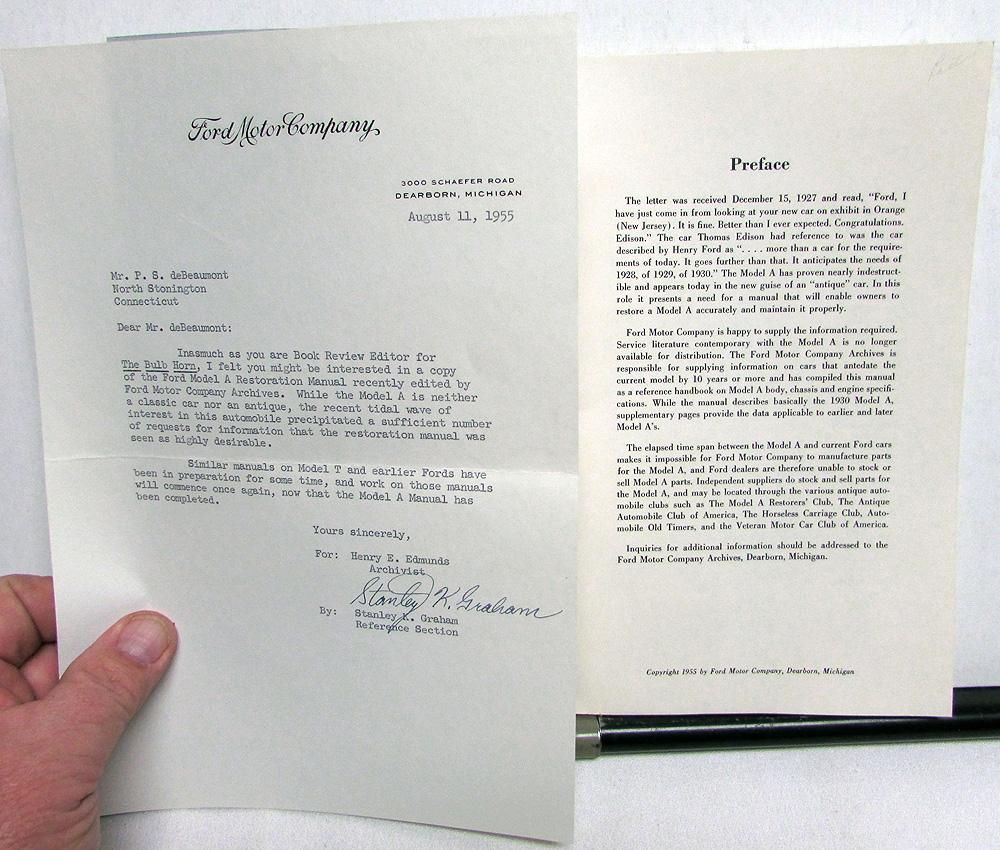 Ford Motor Company
3000 SCHAEFER ROAD
DEARBORN, MICHIGAN
August 11, 1955
Mr. P. S. deBeaumont
North Stonington
Connecticut
Dear Mr. deBeaumont:
Inasmuch as you are Book Review Editor for
The Bulb Horn, I felt you might be interested in a copy
of the Ford Model A Restoration Manual recently edited by
Ford Motor Company Archives. While the Model A is neither
a classic car nor an antique, the recent tidal wave of
interest in this automobile precipitated a sufficient number
of requests for information that the restoration manual was
seen as highly desirable.
Similar manuals on Model T and earlier Fords have
been in preparation for some time, and work on those manuals
will commence once again, now that the Model A Manual has
been completed.
Yours sincerely,
For: Henry E. Edmunds
Archivist
Stanley K. Graham
By: Stanley K. Graham
Reference Section
Preface
The letter was received December 15, 1927 and read, “Ford, I
have just come in from looking at your new car on exhibit in Orange
(New Jersey). It is fine. Better than I ever expected. Congratulations.
Edison.” The car Thomas Edison had reference to was the car
described by Henry Ford as “. . . . more than a car for the require-
ments of today. It goes further than that. It anticipates the needs of
1928, of 1929, of 1930.” The Model A has proven nearly indestruct-
ible and appears today in the new guise of an “antique” car. In this
role it presents a need for a manual that will enable owners to
restore a Model A accurately and maintain it properly.
Ford Motor Company is happy to supply the information required.
Service literature contemporary with the Model A is no longer
available for distribution. The Ford Motor Company Archives is
responsible for supplying information on cars that antedate the
current model by 10 years or more and has compiled this manual
as a reference handbook on Model A body, chassis and engine specifi-
cations. While the manual describes basically the 1930 Model A,
supplementary pages provide the data applicable to earlier and later
Model A’s.
The elapsed time span between the Model A and current Ford cars
makes it impossible for Ford Motor Company to manufacture parts
for the Model A, and Ford dealers are therefore unable to stock or
sell Model A parts. Independent suppliers do stock and sell parts for
the Model A, and may be located through the various antique auto-
mobile clubs such as The Model A Restorers’ Club, The Antique
Automobile Club of America, The Horseless Carriage Club, Auto-
mobile Old Timers, and the Veteran Motor Car Club of America.
Inquiries for additional information should be addressed to the
Ford Motor Company Archives, Dearborn, Michigan.
Copyright 1955 by Ford Motor Company, Dearborn, Michigan